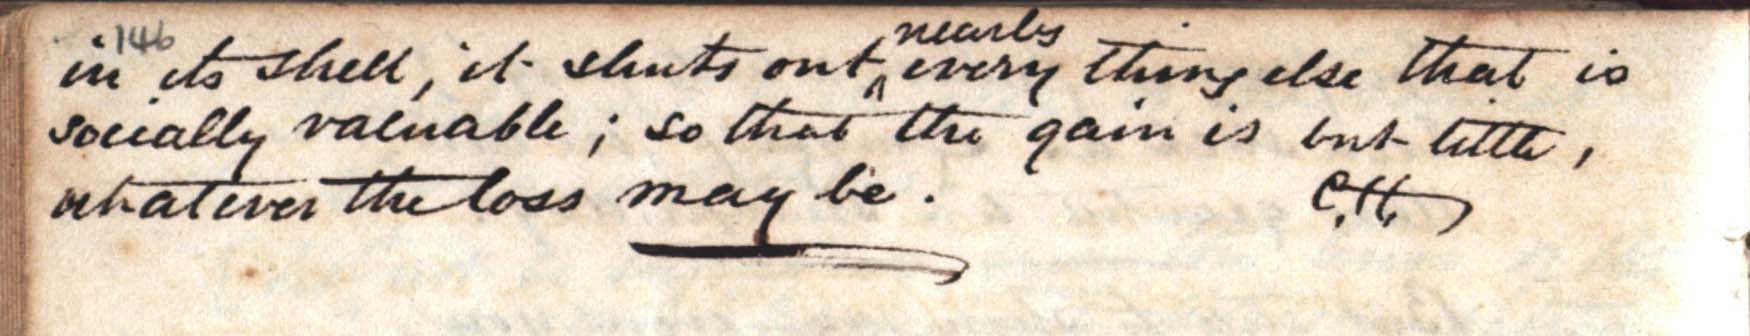 146
in its shell, it shuts out nearly every thing else that is
socially valuable; so that the gain is but little,
whatever the loss may be.
C.H.